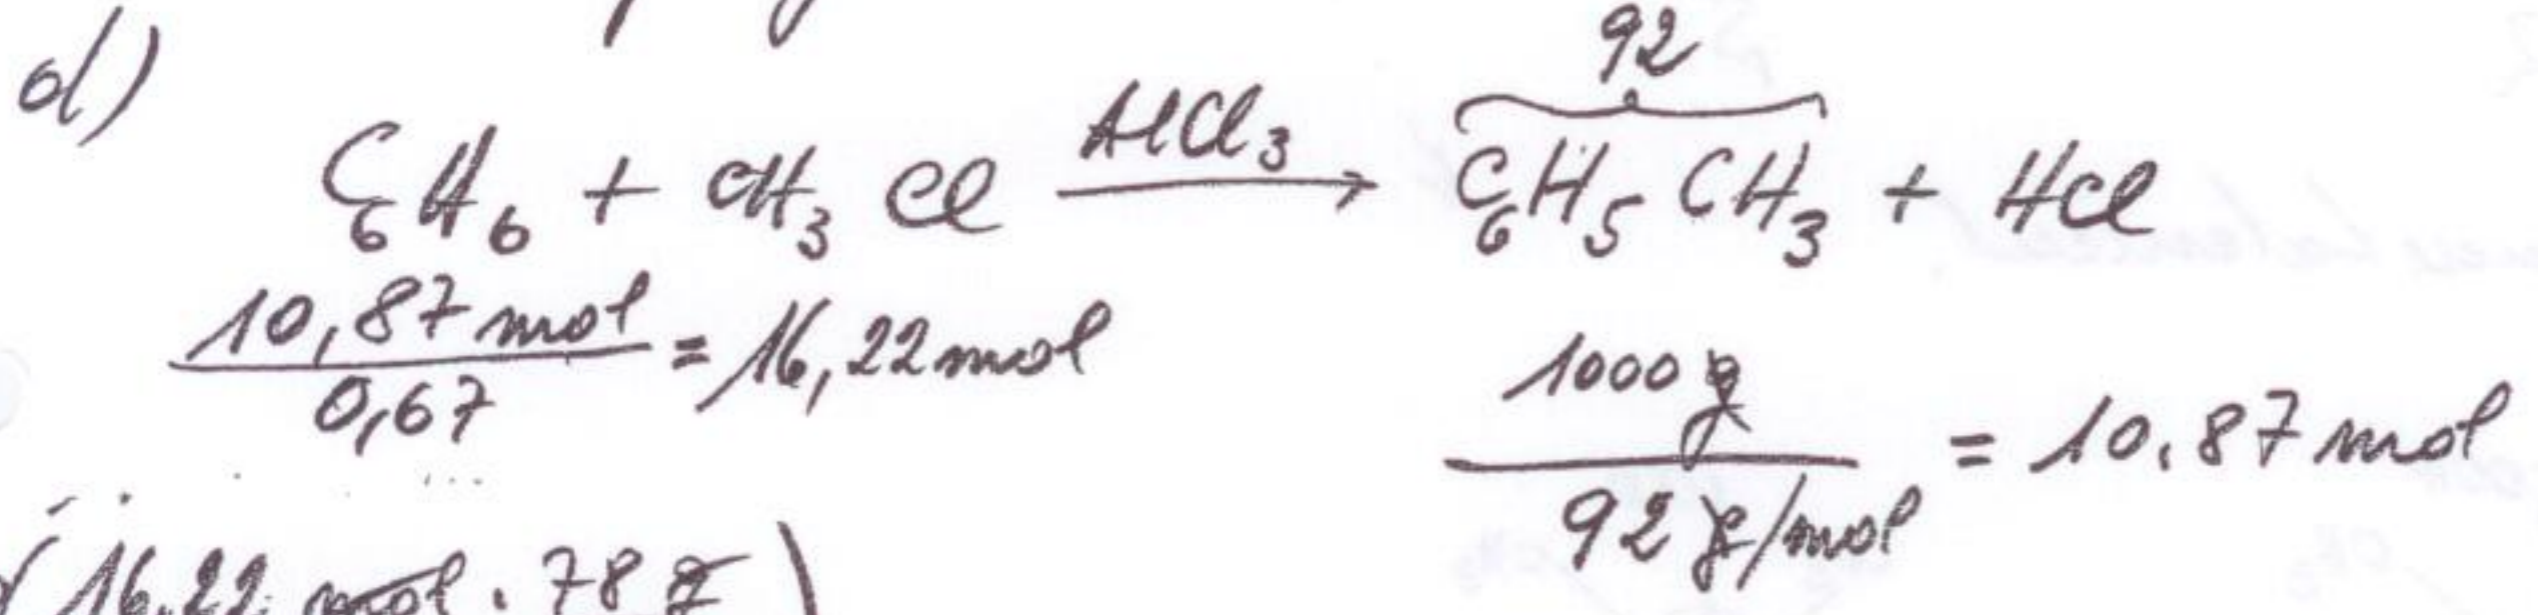 d)
92
C6H6 + CH3Cl AlCl3 → C6H5CH3 + HCl
10,87 mol / 0,67 = 16,22 mol
1000 g / 92 g/mol = 10,87 mol
(16,22 mol · 78 g)